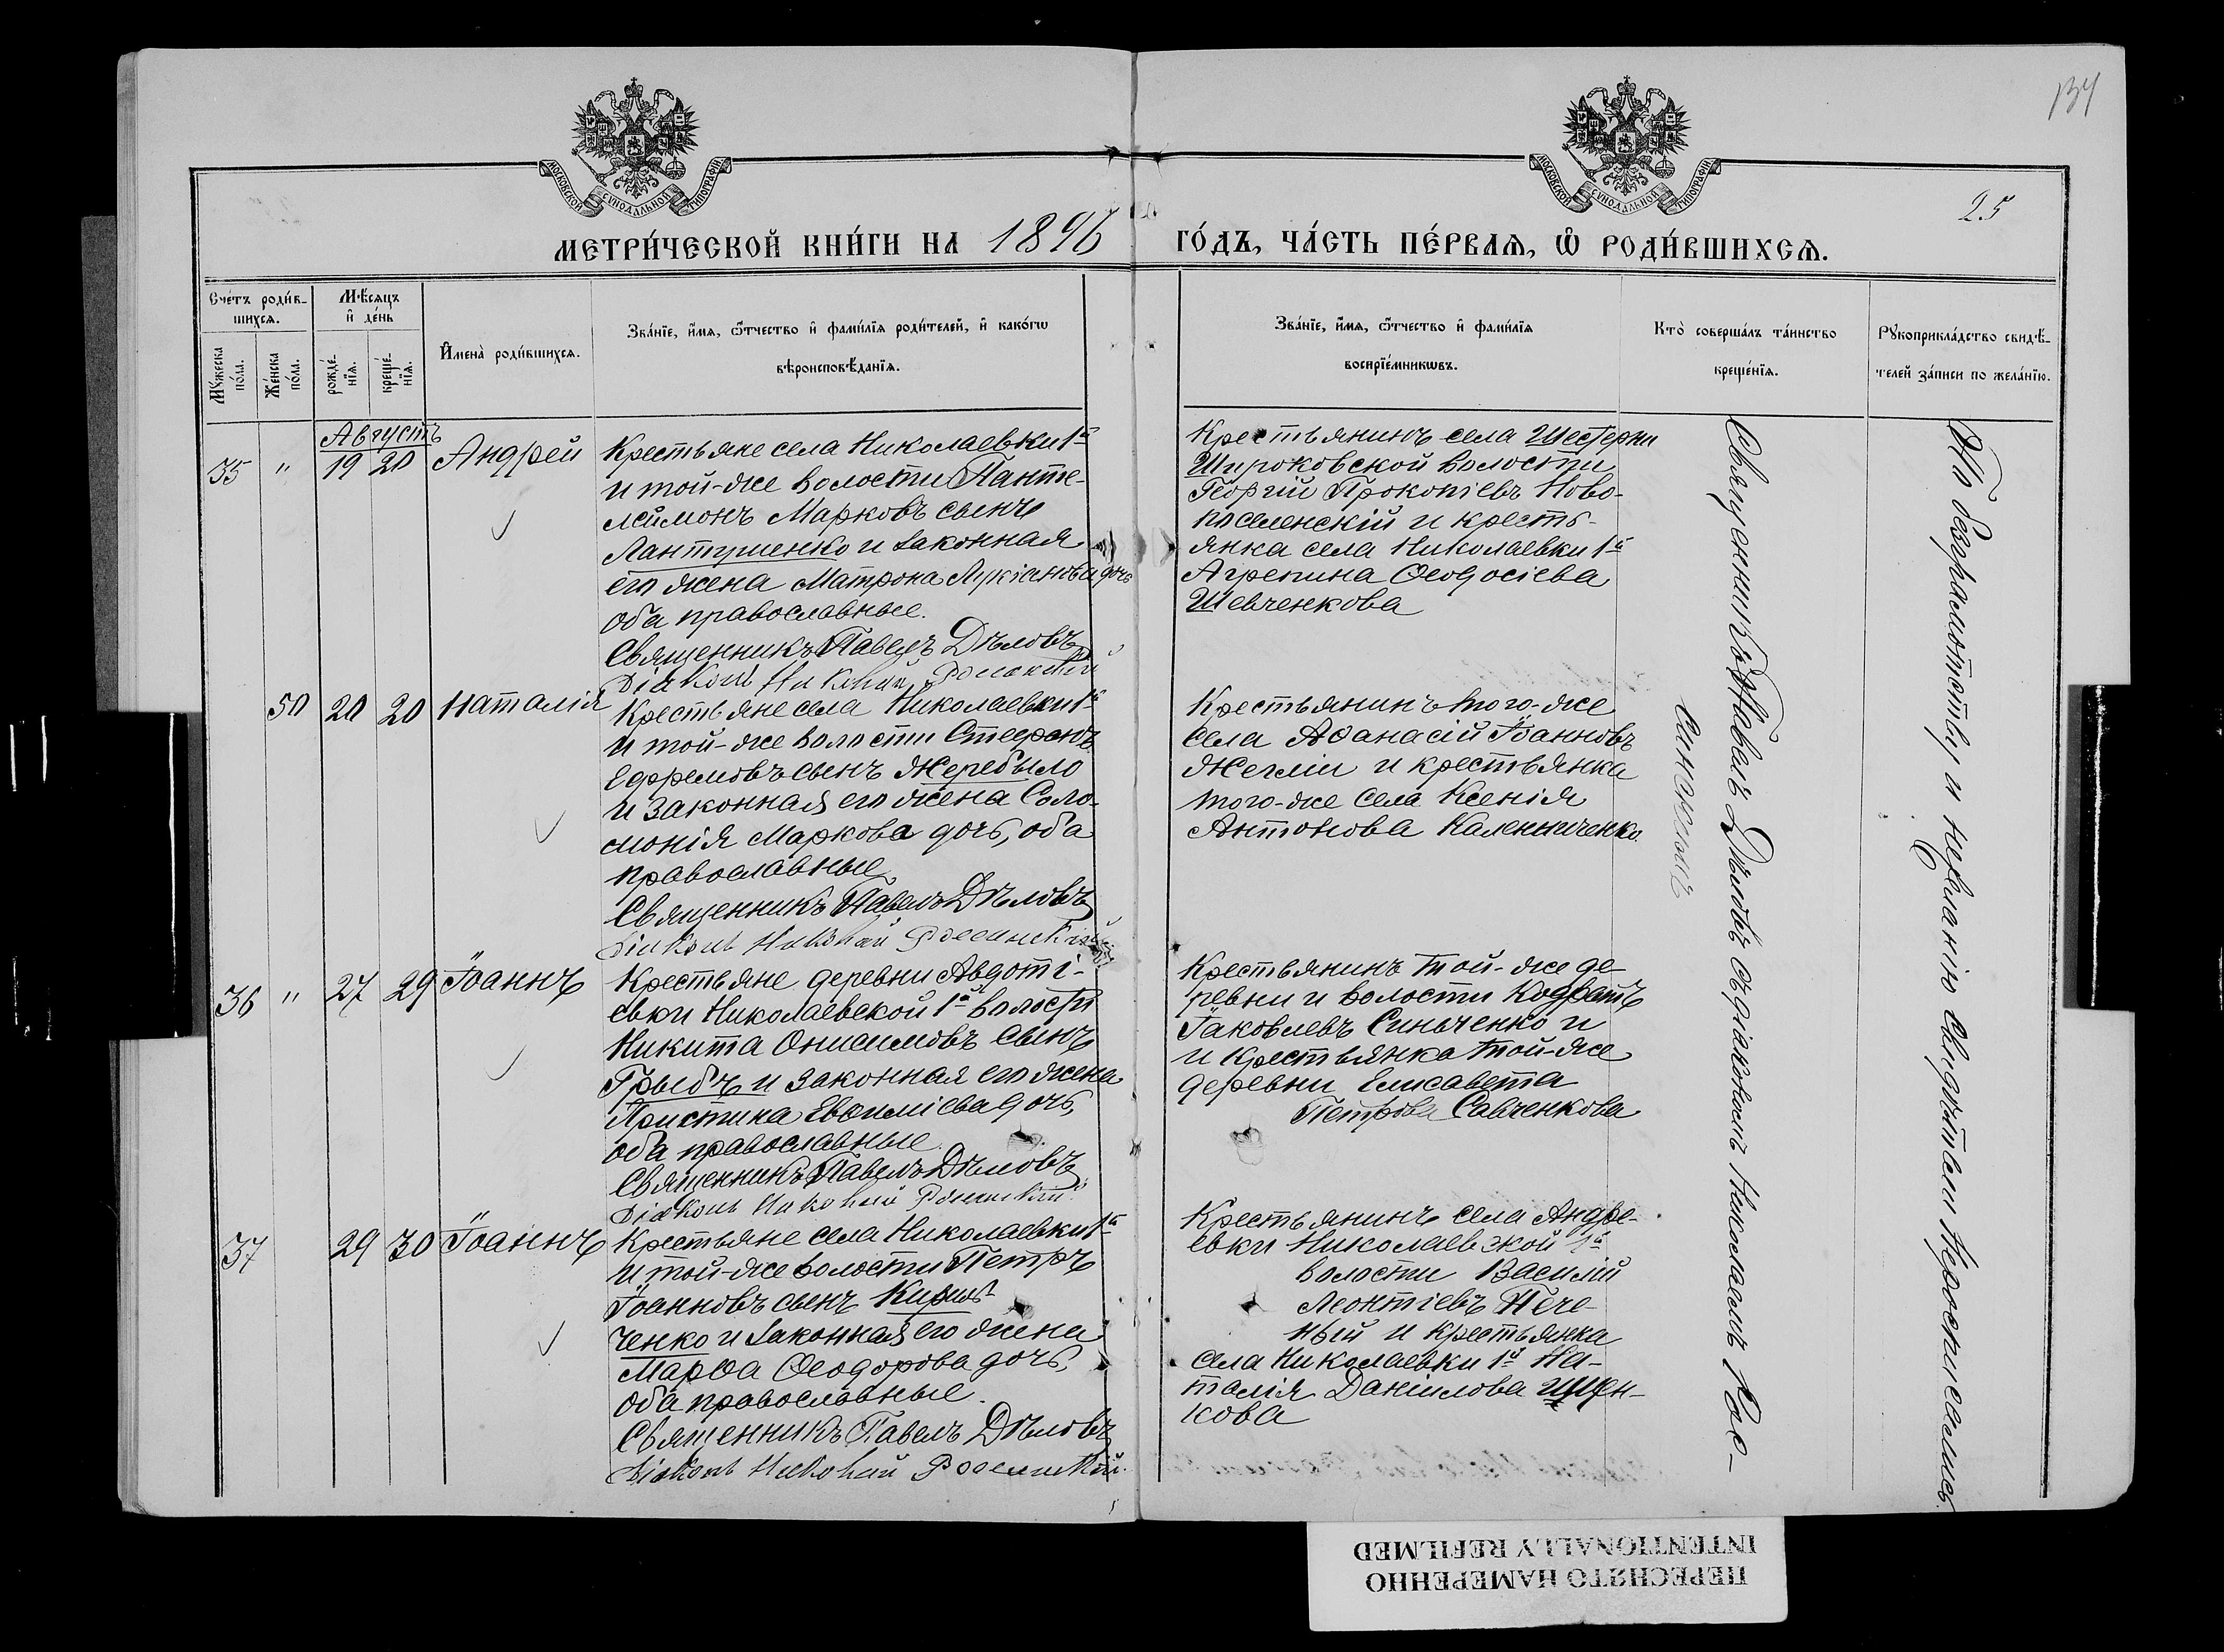 134
25
МОСКОВСКОЙ СУНОДАЛЬНОЙ ТИПОГРАФІИ
МОСКОВСКОЙ СУНОДАЛЬНОЙ ТИПОГРАФІИ
МЕТРИ́ЧЕСКОЙ КНИ́ГИ НА 1896
ГО́ДЪ, ЧА́СТЬ ПЕ́РВАѦ, Ѽ РОДИ́ВШИХСѦ.
Сче́тъ роди́в-
шихсѧ.
Мꙋ́жеска
по́ла.
Же́нска
по́ла.
Мѣ́сѧцъ
и҆ де́нь
рожде́-
нїѧ.
креще́-
нїѧ.
И҆мена̀ роди́вшихсѧ.
Зва́нїе, и҆́мѧ, ѻ҆́тчество и҆ фами́лїѧ роди́телей, и҆ како́гѡ
вѣроисповѣ́данїѧ.
Зва́нїе, и҆́мѧ, ѻ҆́тчество и҆ фами́лїѧ
воспрїе́мникѡвъ.
Кто̀ соверша́лъ та́инство
креще́нїѧ.
Рꙋкоприкла́дство свидѣ́-
телей за́писи по жела́нїю.
Августъ
35 " 19 20 Андрей
Крестьяне села Николаевки 1й
и той-же волости Панте-
леймонъ Марковъ сынъ
Лантушенко и законная
его жена Матрона Лукіанова дочь
оба православные.
Священникъ Павелъ Дѣловъ
Діаконъ Николай
Крестьянинъ села Шестерни
Широковской волости
Георгій Прокопіевъ Ново-
поселенскій и кресть-
янка села Николаевки 1й
Агрепина Ѳеодосіева
Шевченкова
50 20 20 Наталія
Крестьяне села Николаевки 1й
и той-же волости Стефанъ
Ефремовъ сынъ Жеребыло
и законная его жена Соло-
монія Маркова дочь, оба
православные
Священникъ Павелъ Дѣловъ
Діаконъ Николай
Крестьянинъ того-же
села Аѳанасій Іоанновъ
и крестьянка
того-же села Ксенія
Антонова Калениченко.
36 " 27 29 Іоаннъ
Крестьяне деревни Авдоті-
евки Николаевской 1й волости
Никита Онисимовъ сынъ
Грыбъ и законная его жена
Христина Евѳиміева дочь,
оба православные
Священникъ Павелъ Дѣловъ
Діаконъ Николай
Крестьянинъ той-же де-
ревни и волости Кодратъ
Іаковлевъ Синьченко и
и крестьянка той-же
деревни Елисавета
Петрова Савченкова
37 29 30 Іоаннъ
Крестьяне села Николаевки 1й
и той-же волости Петръ
Іоанновъ сынъ
ченко и законная его жена
Марѳа Ѳеодорова дочь,
оба православные.
Священникъ Павелъ Дѣловъ
Діаконъ Николай
Крестьянинъ села Андре-
евки Николаевской 1й
волости Василій
Леонтіевъ Пече-
ный и крестьянка
села Николаевки 1й На-
талія Даніилова Ищен-
кова
Священникъ Павелъ Дѣловъ съ діакономъ Николаемъ Рос-
По безграмотству и нежеланію свидѣтели не росписались.
ПЕРЕСНЯТО НАМЕРЕННО
INTENTIONALLY REFILMED